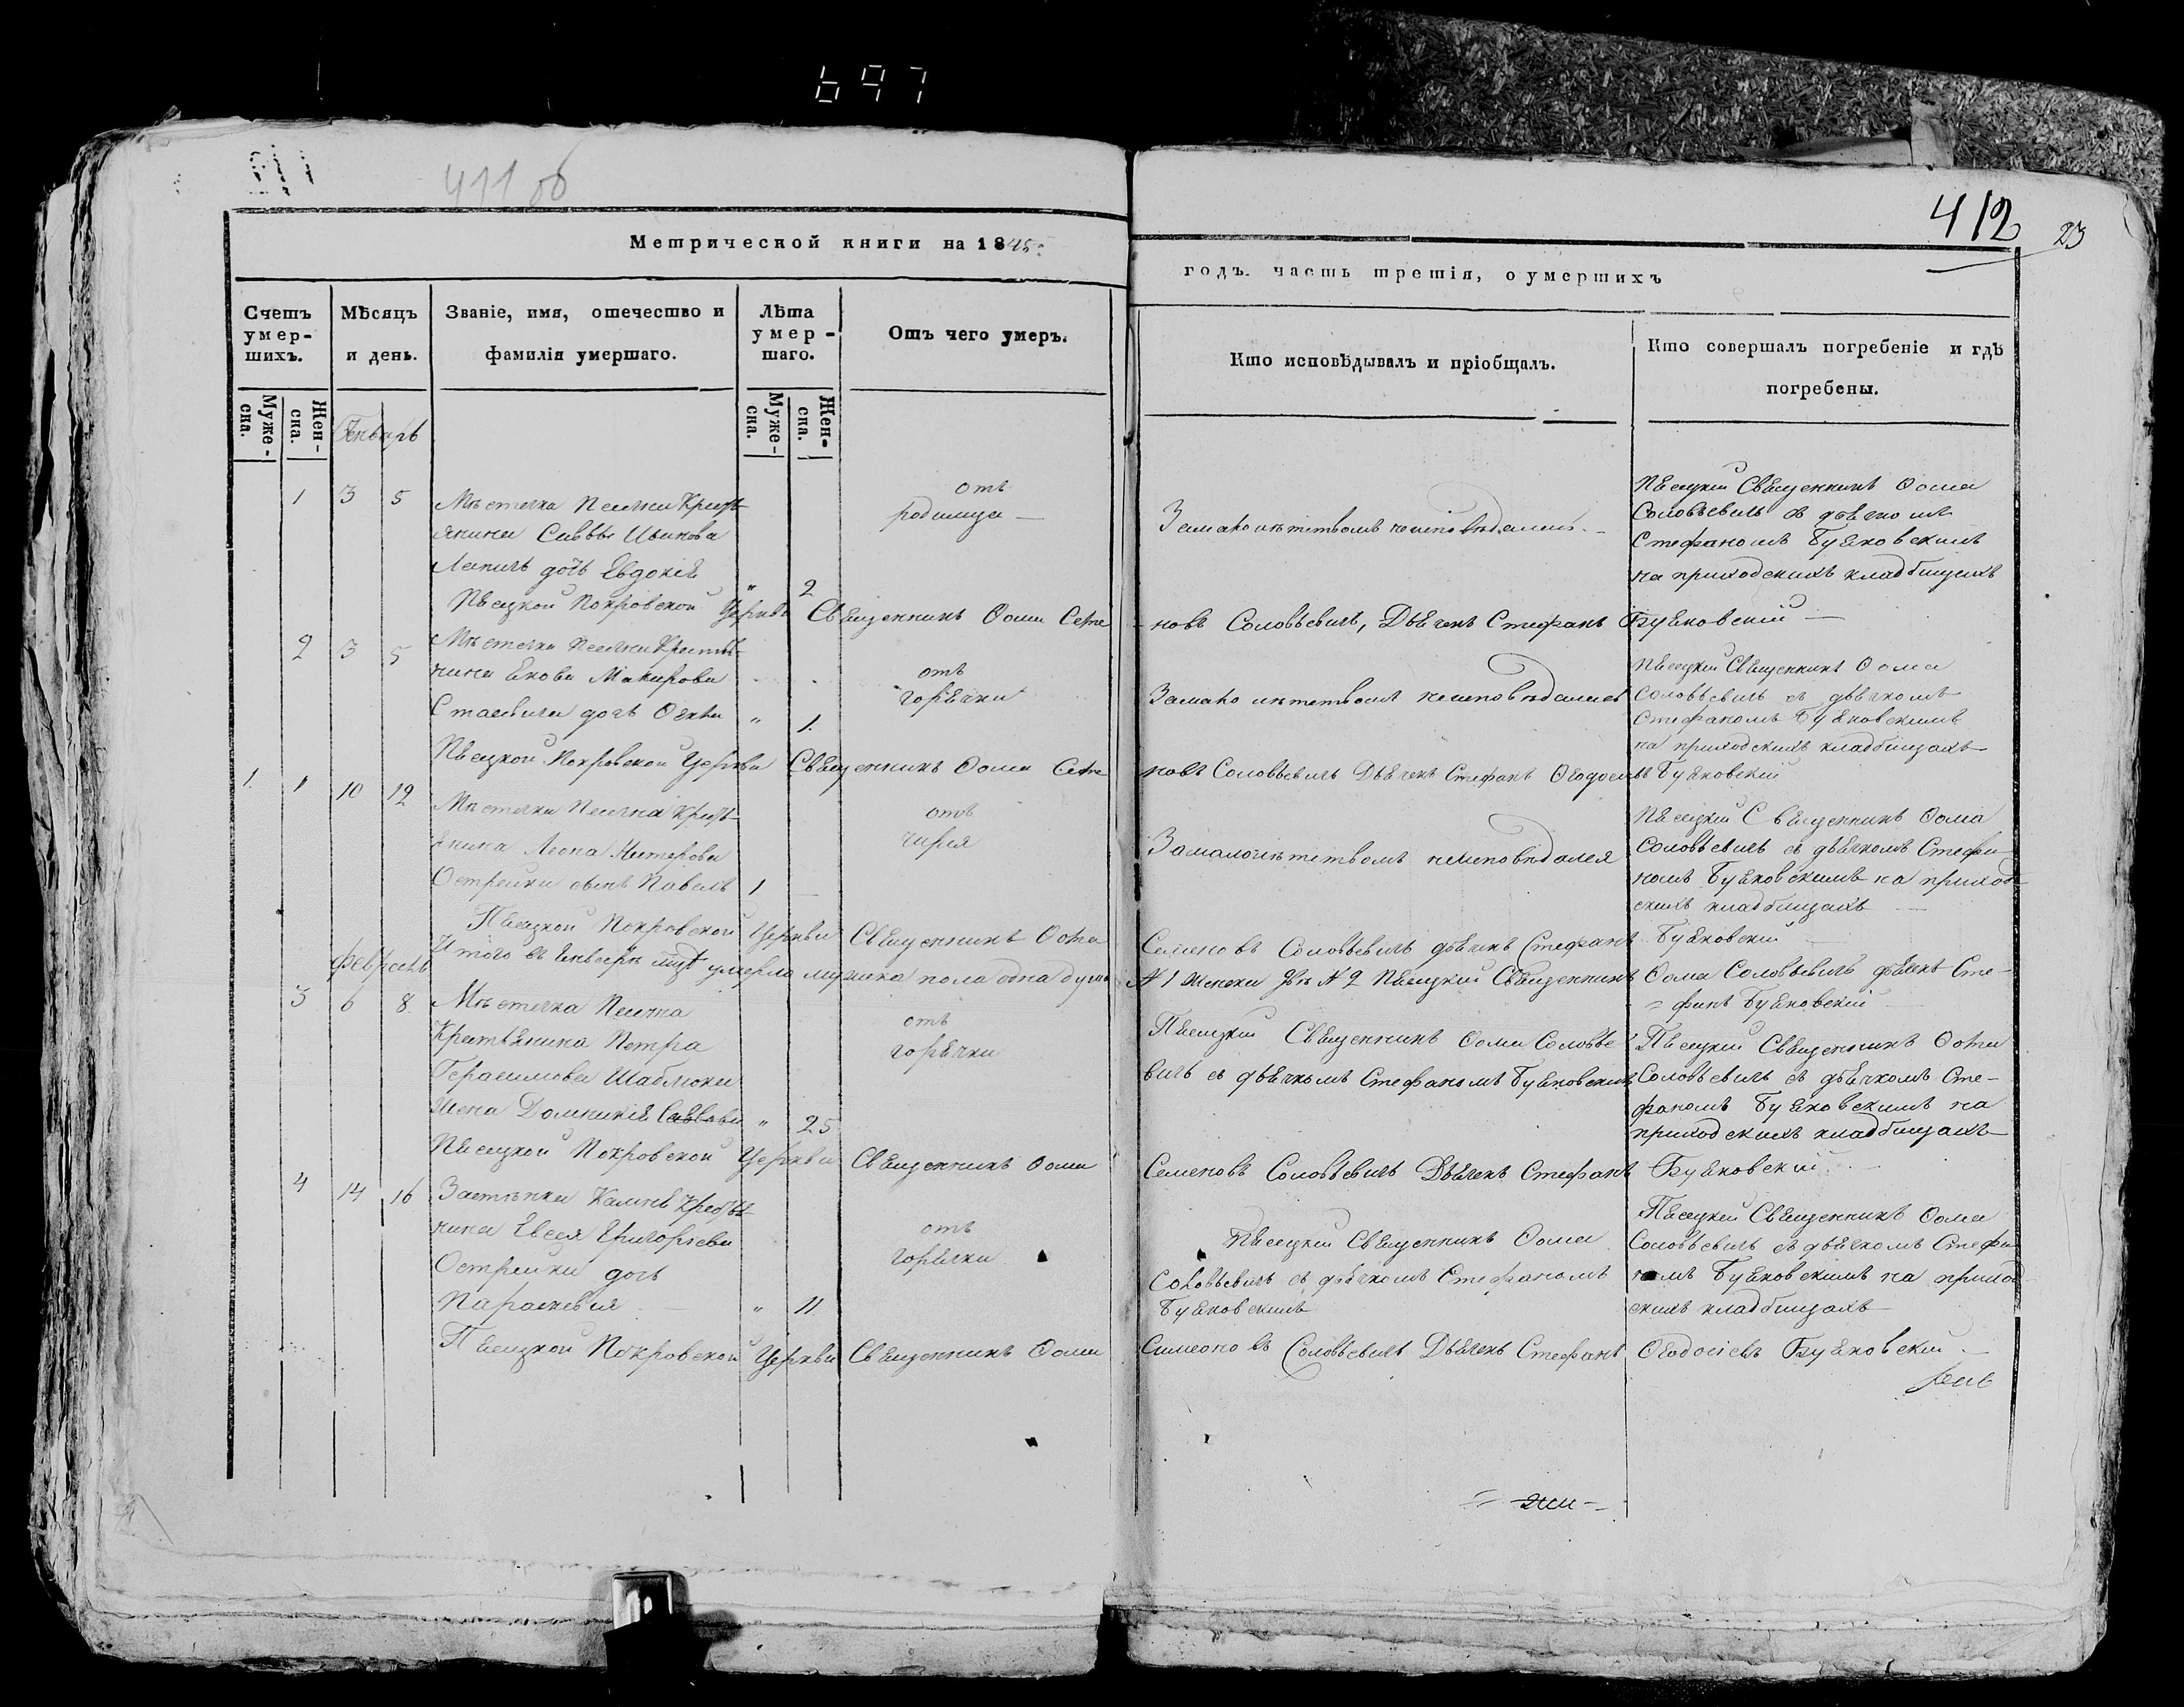 697
411 об
412
23
Метрической книги на 1845:
годъ. часть третія, о умершихъ
Счетъ умер-шихъ.
Мѣсяцъ и день.
Званіе, имя, отечество и фамилія умершаго.
Лѣта умер-шаго.
Отъ чего умеръ.
Кто исповѣдывалъ и пріобщалъ.
Кто совершалъ погребеніе и гдѣ погребены.
Муже-ска.
Жен-ска.
Муже-ска.
Жен-ска.
Январь
1 3 5
Мѣстечка Песчки Крестъ
янина Саввы Иванова
Лапичъ дочь Евдокія " 2
отъ
родимца —
За малолѣтствомъ неисповѣдалась. —
Пѣсецкій Священникъ Ѳома
Соловьевичь съ дьячкомъ
Стефаномъ Буяковскимъ
на приходскихъ кладбищахъ
Пѣсецкой Покровской Церкви Священникъ Ѳома Семе
новъ Соловьевичь, Дьячекъ Стефанъ Буяковскій —
2 3 5
Мѣстечка Песчки Крестья
нина Якова Макарова
Стасевича дочь " 1.
отъ
горячки
За малолѣтствомъ неисповѣдалась
Пѣсецкій Священникъ Ѳома
Соловьевичь съ дьячкомъ
Стефаномъ Буяковскимъ
на приходскихъ кладбищахъ
Пѣсецкой Покровской Церкви Священникъ Ѳома Семе
новъ Соловьевичь Дьячекъ Стефанъ Ѳеодосіевъ Буяковскій
1. 1 10 12
Мѣстечка Песчка Крестъ
янина Леона
Острейки сынъ Павелъ 1 —
отъ
чирея
За малолѣтствомъ неисповѣдался
Пѣсецкій Священникъ Ѳома
Соловьевичь съ дьячкомъ Стефа
номъ Буяковскимъ на приход
скихъ кладбищахъ —
Пѣсецкой Покровской Церкви Священникъ Ѳома
Семеновъ Соловьевичь дьячекъ Стефанъ Буяковскій —
Февраль
Итого въ Январѣ мцѣ умерло мужска пола одна душа
№ 1 женска двѣ № 2 Пѣсецкій Священникъ Ѳома Соловьевичь дьячекъ Сте-
= фанъ Буяковскій —
3 6 8.
Мѣстечка Песчка
Крестьянина Петра
Герасимова Шаблюка
жена Домникія Саввова " 25
отъ
горячки
Пѣсецкій Священникъ Ѳома Соловье
вичь съ дьячкомъ Стефаномъ Буяковскимъ
Пѣсецкій Священникъ Ѳома
Соловьевичь съ дьячкомъ Сте-
фаномъ Буяковскимъ на
приходскихъ кладбищахъ
Пѣсецкой Покровской Церкви Священникъ Ѳома
Семеновъ Соловьевичь Дьячекъ Стефанъ Буяковскій. —
4 14 16
Застѣнка Крестья
нина Евсея Григорьева
Острейки дочь
Параскевія — " 11
отъ
горячки
Пѣсецкій Священникъ Ѳома
Соловьевичь съ дьячкомъ Стефаномъ
Буяковскимъ
Пѣсецкій Священникъ Ѳома
Соловьевичь съ дьячкомъ Стефа
номъ Буяковскимъ на приход
скихъ кладбищахъ
Пѣсецкой Покровской Церкви Священникъ Ѳома
Симеоновъ Соловьевичь Дьячекъ Стефанъ Ѳеодосіевъ Буяковскій. —